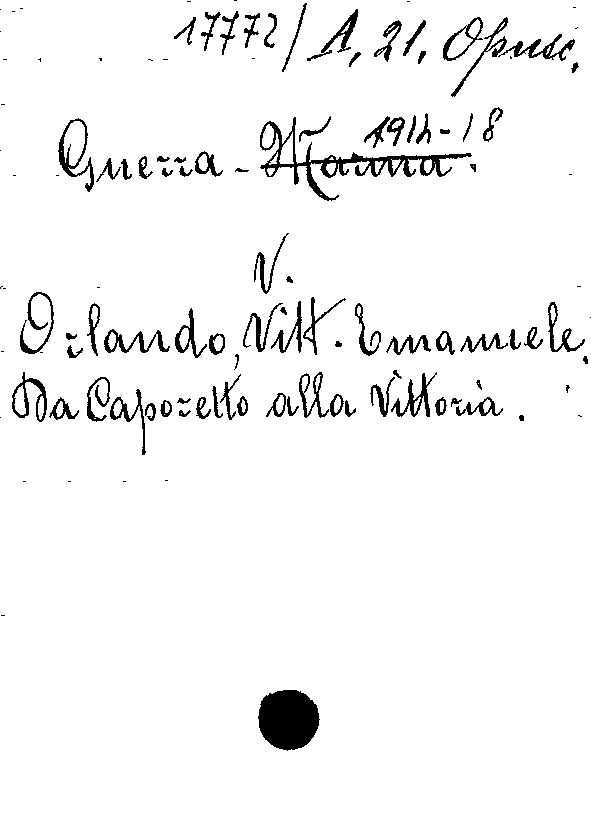 17772/A, 21, Opusc.
Guerra - Marina 1914-18.
V.
Orlando, Vitt. Emanuele.
Da Caporetto alla Vittoria.